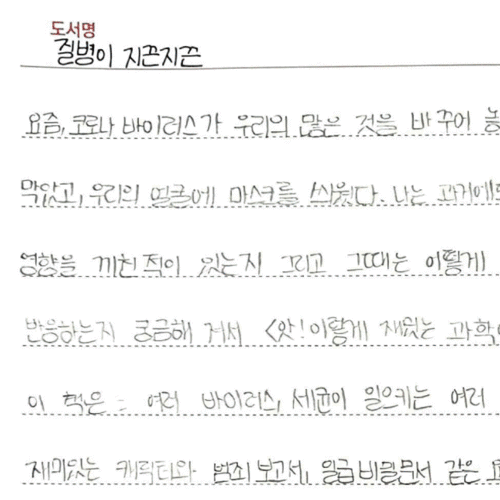 도서명
질병이 지끈지끈
요즘, 코로나 바이러스가 우리의 많은 것을 바꾸어 놓
막았고, 우리의 얼굴에 마스크를 씌웠다. 나는 과거에도
영향을 끼친 적이 있는지 그리고 그때는 어떻게
반응하는지 궁금해 져서 <앗! 이렇게 재밌는 과학이
이 책은 여러 바이러스, 세균이 일으키는 여러
재미있는 캐릭터와 범죄 보고서, 일급 비밀문서 같은